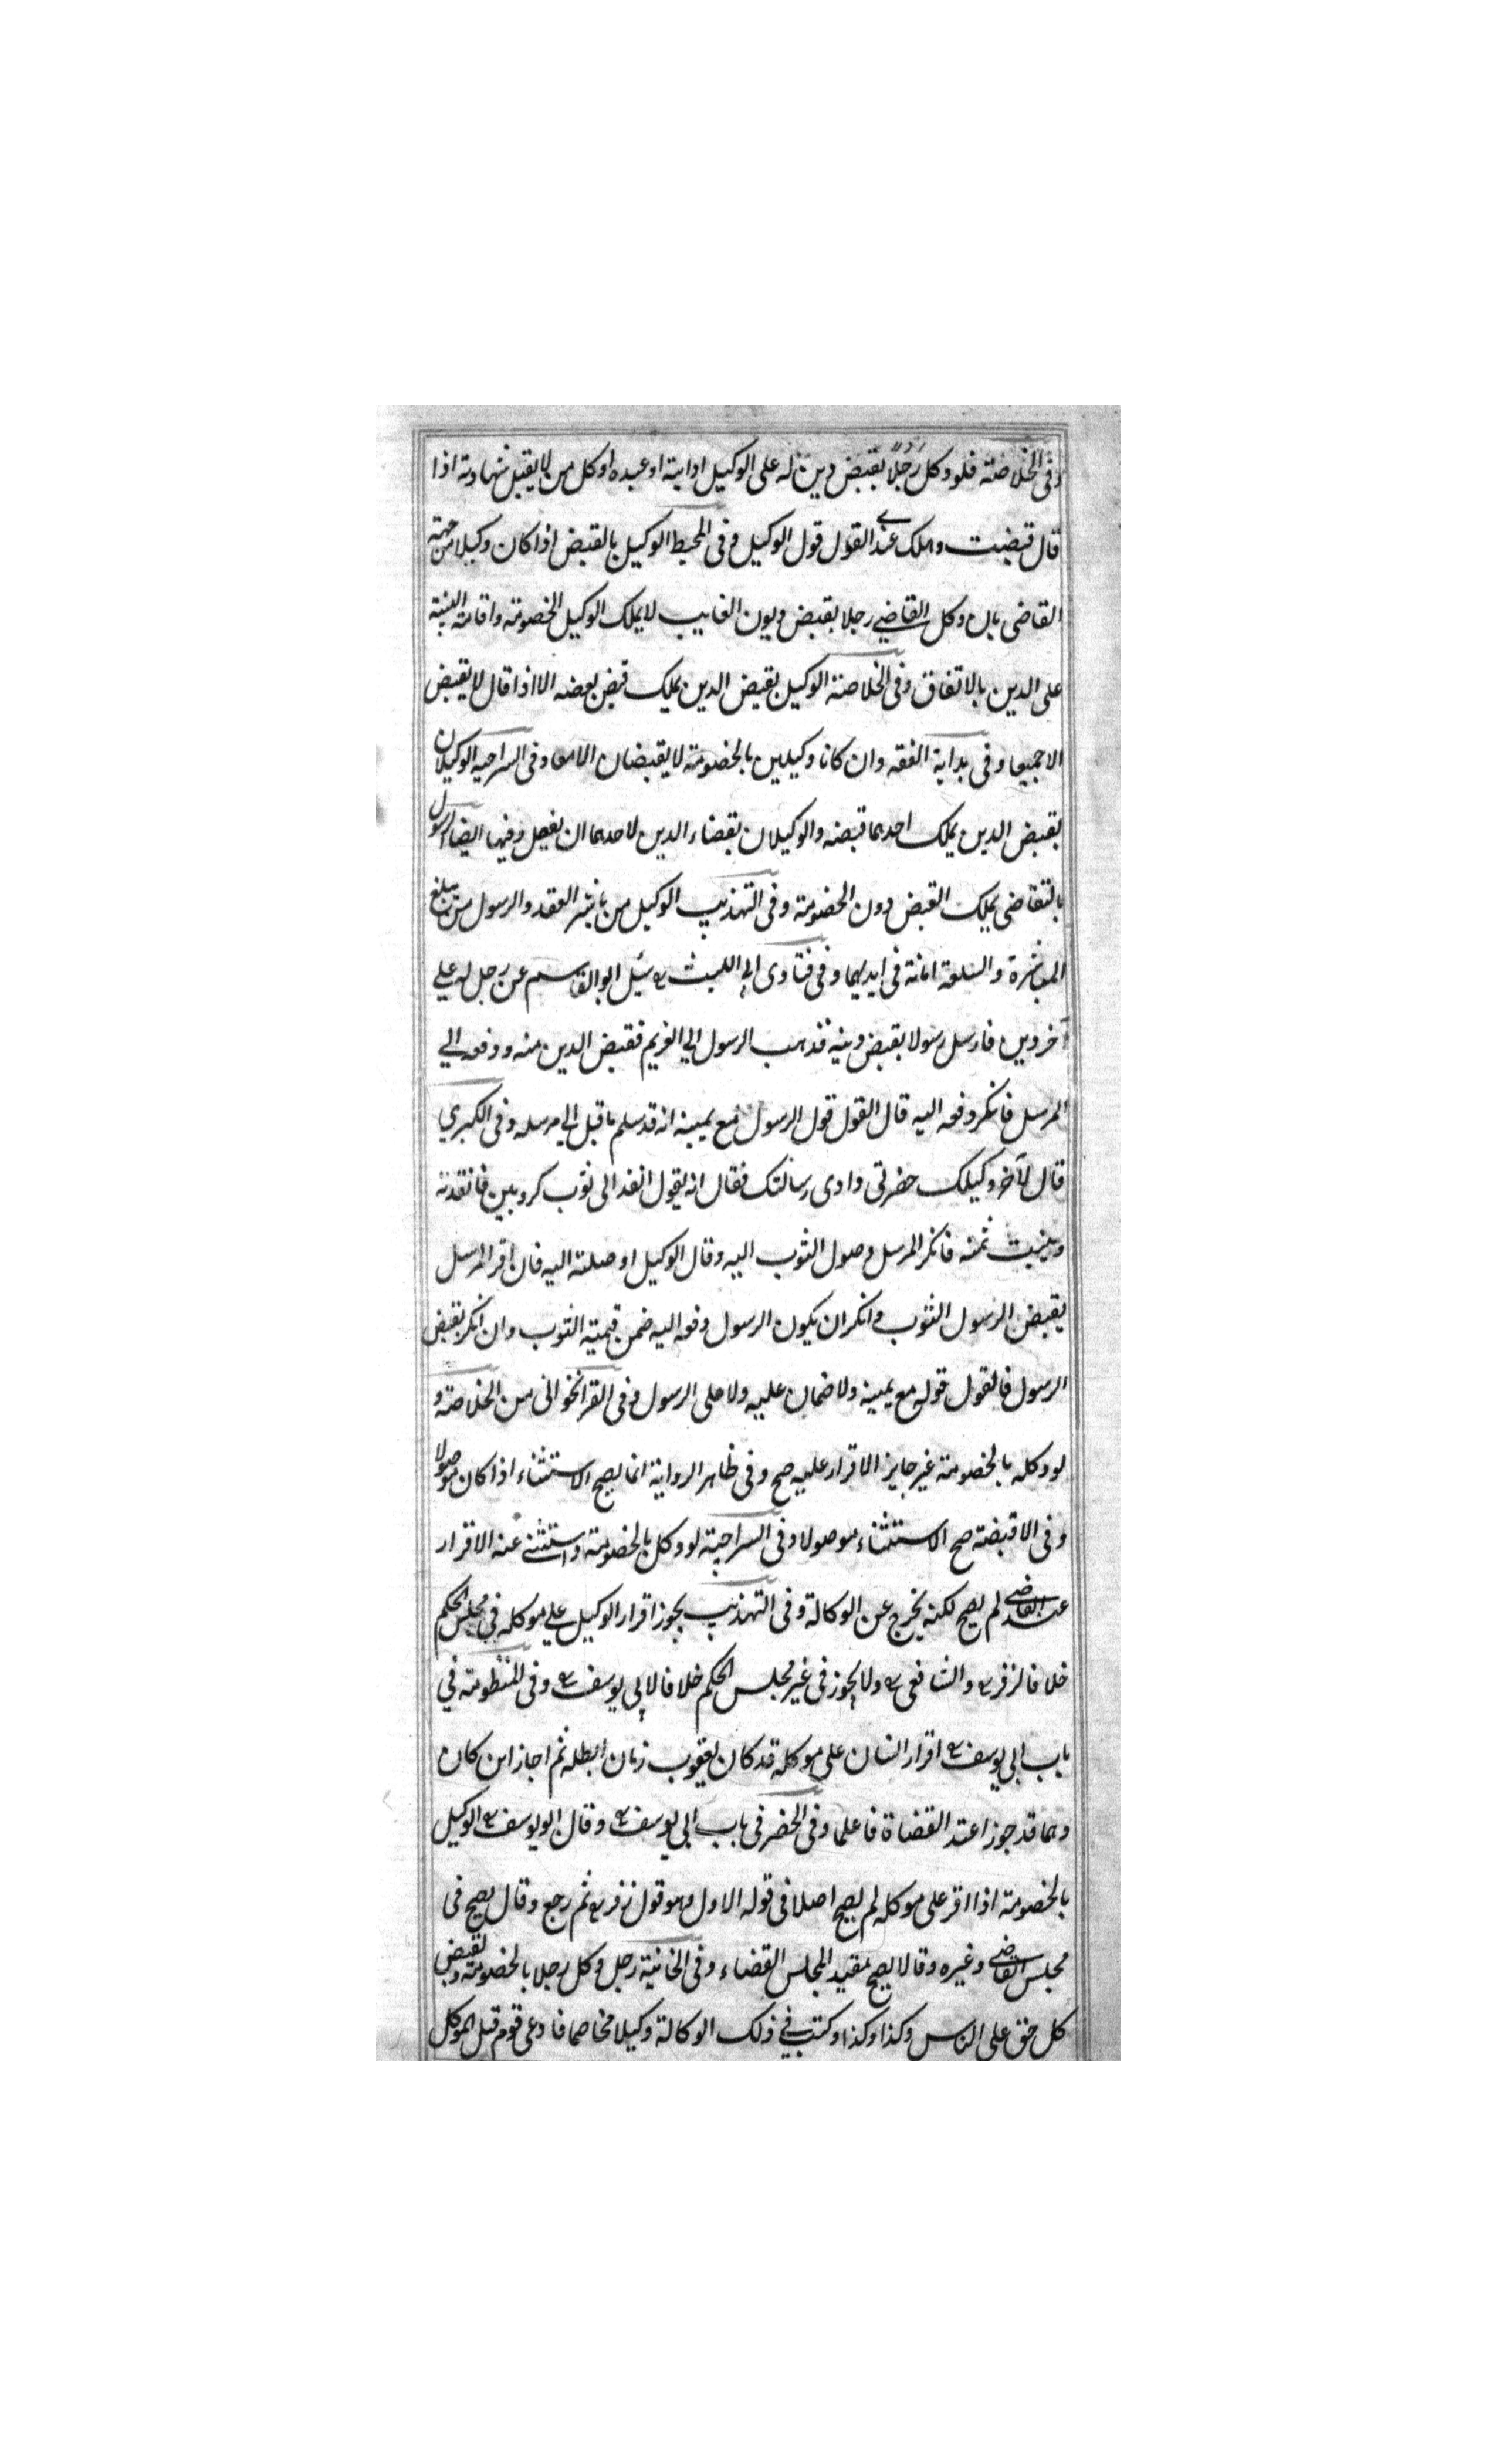 وفى الخلاصة فلو وكل رجلا بقبض دين له على الوكيل او ابنه او عبده او وكل من لا يقبل شهادته اذا
قال قبضت وهلك عندي القول قول الوكيل وفى المحيط الوكيل بالقبض اذا كان وكيلا من جهة
القاضى بان وكل القاضي رجلا بقبض ديون الغايب لا يملك الوكيل الخصومة واقامة البينة
على الدين بالاتفاق وفى الخلاصة الوكيل بقبض الدين يملك قبض بعضه الا اذا قال لا يقبض
الا جميعا وفى بداية الفقه وان كانا وكيلين بالخصومة لا يقبضان الا معا وفى السراجيه الوكيلان
بقبض الدين يملك احدهما قبضه والوكيلان بقضاء الدين لاحدهما ان يفعل وفيها ايضا الرسول
بالتقاضى يملك القبض دون الخصومة وفى التهذيب الوكيل من باشر العقد والرسول من يبلغ
المباشرة والسلعة امانة فى ايديهما وفى فتاوى ابى الليث سئل ابو القاسم عن رجل له علي
آخر دين فارسل رسولا بقبض دينه فذهب الرسول الي الغريم فقبض الدين منه ودفعه الي
المرسل فانكر دفعه اليه قال القول قول الرسول مع يمينه انه قد سلم ما قبل الى مرسله وفى الكبري
قال لآخر وكيلك حضرتى وادى رسالتك فقال انه يقول انفذ الى ثوب كروبين فانفذته
وبينت ثمنه فانكر المرسل وصول الثوب اليه وقال الوكيل اوصلته اليه فان اقر المرسل
بقبض الرسول الثوب وانكر ان يكون الرسول دفعه اليه ضمن قيمية الثوب وان انكر بقبض
الرسول فالقول قوله مع يمينه ولا ضمان عليه ولا على الرسول وفى القراخوانى من الخلاصة و
لو وكله بالخصومة غير جايز الاقرار عليه صح وفى ظاهر الرواية انما يصح الاستثناء اذا كان موصولا
وفى الاقبضة صح الاستثناء موصولا وفى السراجية لو وكل بالخصومة واستثني عنه الاقرار
عند القاضي لم يصح لكنه يخرج عن الوكالة وفى التهذيب يجوز اقرار الوكيل علي موكله في مجلس الحكم
خلافا لزفر والشافعى ولا يجوز فى غير مجلس الحكم خلافا لابى يوسف وفى المنظومة في
باب ابى يوسف اقرار انسان على موكله قد كان يعقوب زمان ابطله ثم اجاز اين كان
وهما قد جوزا عند القضاة فاعلما وفى الحضر فى باب ابى يوسف وقال ابو يوسف الوكيل
بالخصومة اذا اقر على موكله لم يصح اصلا فى قوله الاول وهو قول زفر ثم رجع وقال يصح فى
مجلس القاضي وغيره وقالا يصح مقيد المجلس القضاء وفى الخانية رجل وكل رجلا بالخصومة وبقبض
كل حق على الناس وكذا وكذا وكتب في ذلك الوكالة وكيلا مخاصما فادعى قوم قبل الموكل